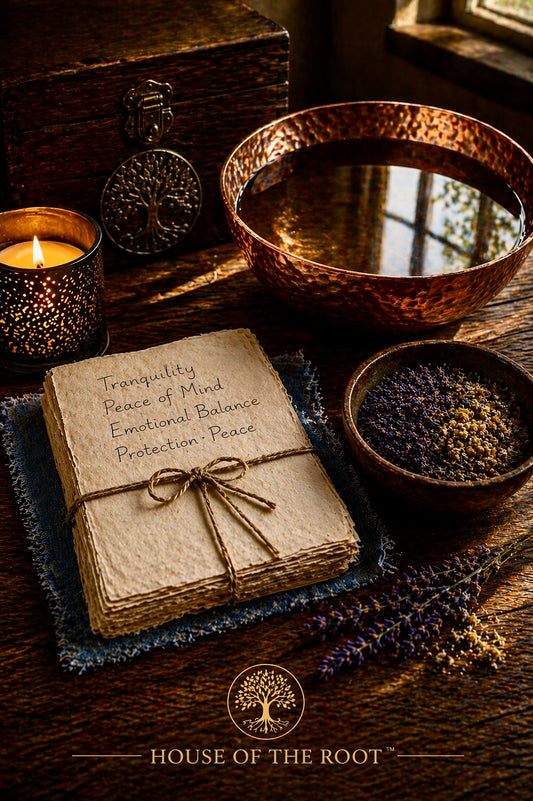 Tranquility
Peace of Mind
Emotional Balance
Protection · Peace
HOUSE OF THE ROOT™